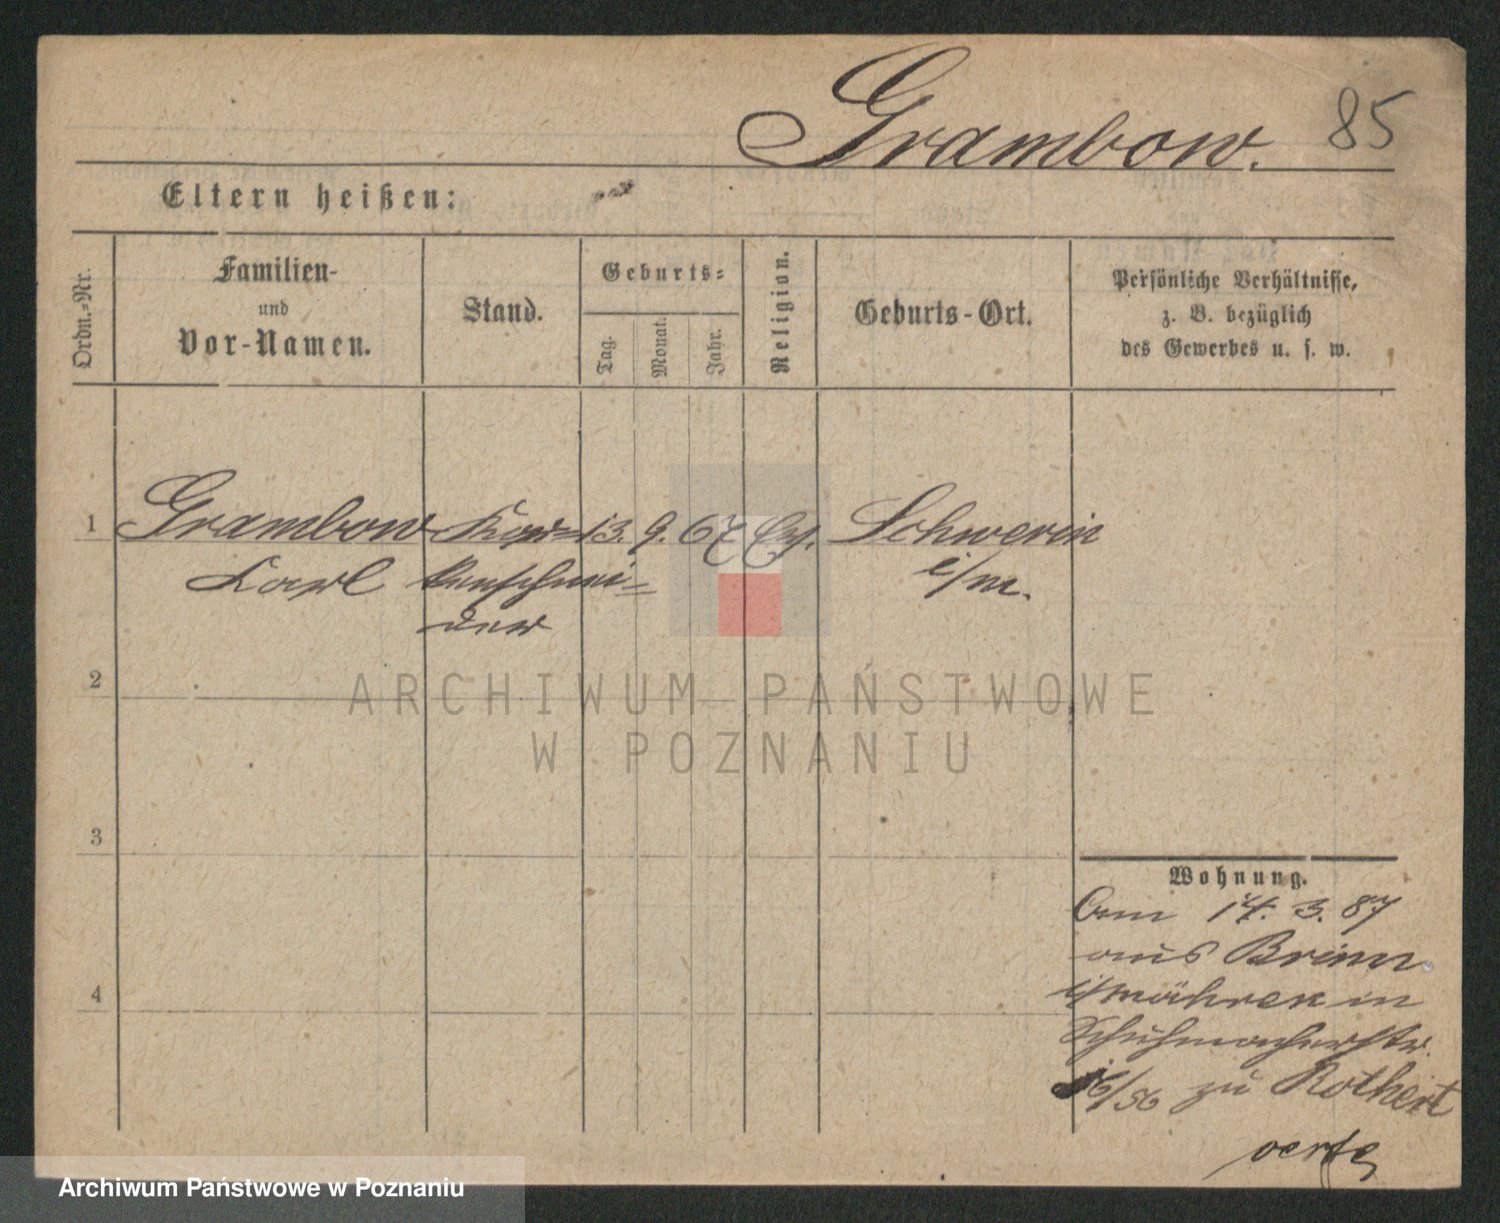 Grambow. 85
Eltern heißen:
Ordn.-Nr.
Familien-
und
Vor-Namen.
Stand.
Geburts-
Tag.
Monat.
Jahr.
Religion.
Geburts-Ort.
Persönliche Verhältnisse,
z. B. bezüglich
des Gewerbes u. s. w.
1 Grambow Kor= 13. 9. 67 Schwerin
Karl kenschnei= i/m.
der
2
3
4
Wohnung.
Am 14. 3. 87
aus Brünn
i/Mähren in
Schuhmacherstr.
16/56 zu Rothert
ARCHIWUM PAŃSTWOWE
W POZNANIU
Archiwum Państwowe w Poznaniu